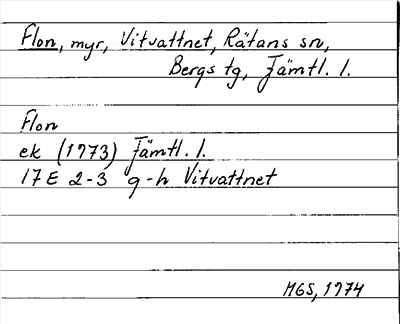 Flon, myr, Vitvattnet, Rätans sn,
Bergs tg, Jämtl. l.
Flon
ek (1973) Jämtl. l.
17E 2-3 g-h Vitvattnet
MGS, 1974